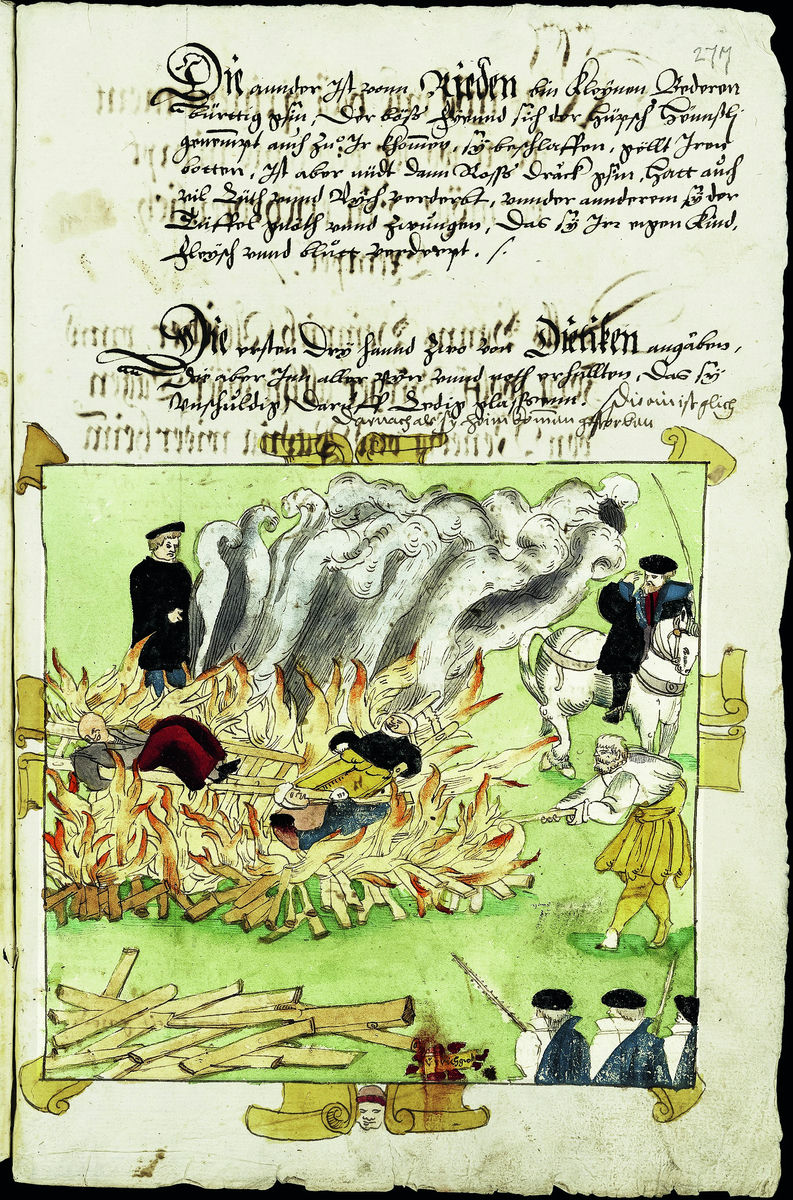 277
Die annder Ist vonn Rieden bin Kleynen Bederen
bürttig gsin, Der böß fyennd sich der hüpsch Hennsli
genempt auch zuͦ Ir khommen, sy beschlaffen, göllt Iren
botten, Ist aber nüdt dann Ross dräck gsin, Hatt auch
vil Lüth vnnd Vych verderbt, vnnder annderem sy der
Tüffel gnoth vnnd zwungen, Das sy Irr eigen Kind,
fleysch vnnd bluͦtt verderpt.
Die ersten Dry hannd zwo von Dietiken angäben,
Die aber Inn aller pyn vnnd noth erhallten, Das sy
Vnschuldig, Daruff Ledig glassenn. Die ein ist glich
Darnach als sy heim komman gestorban